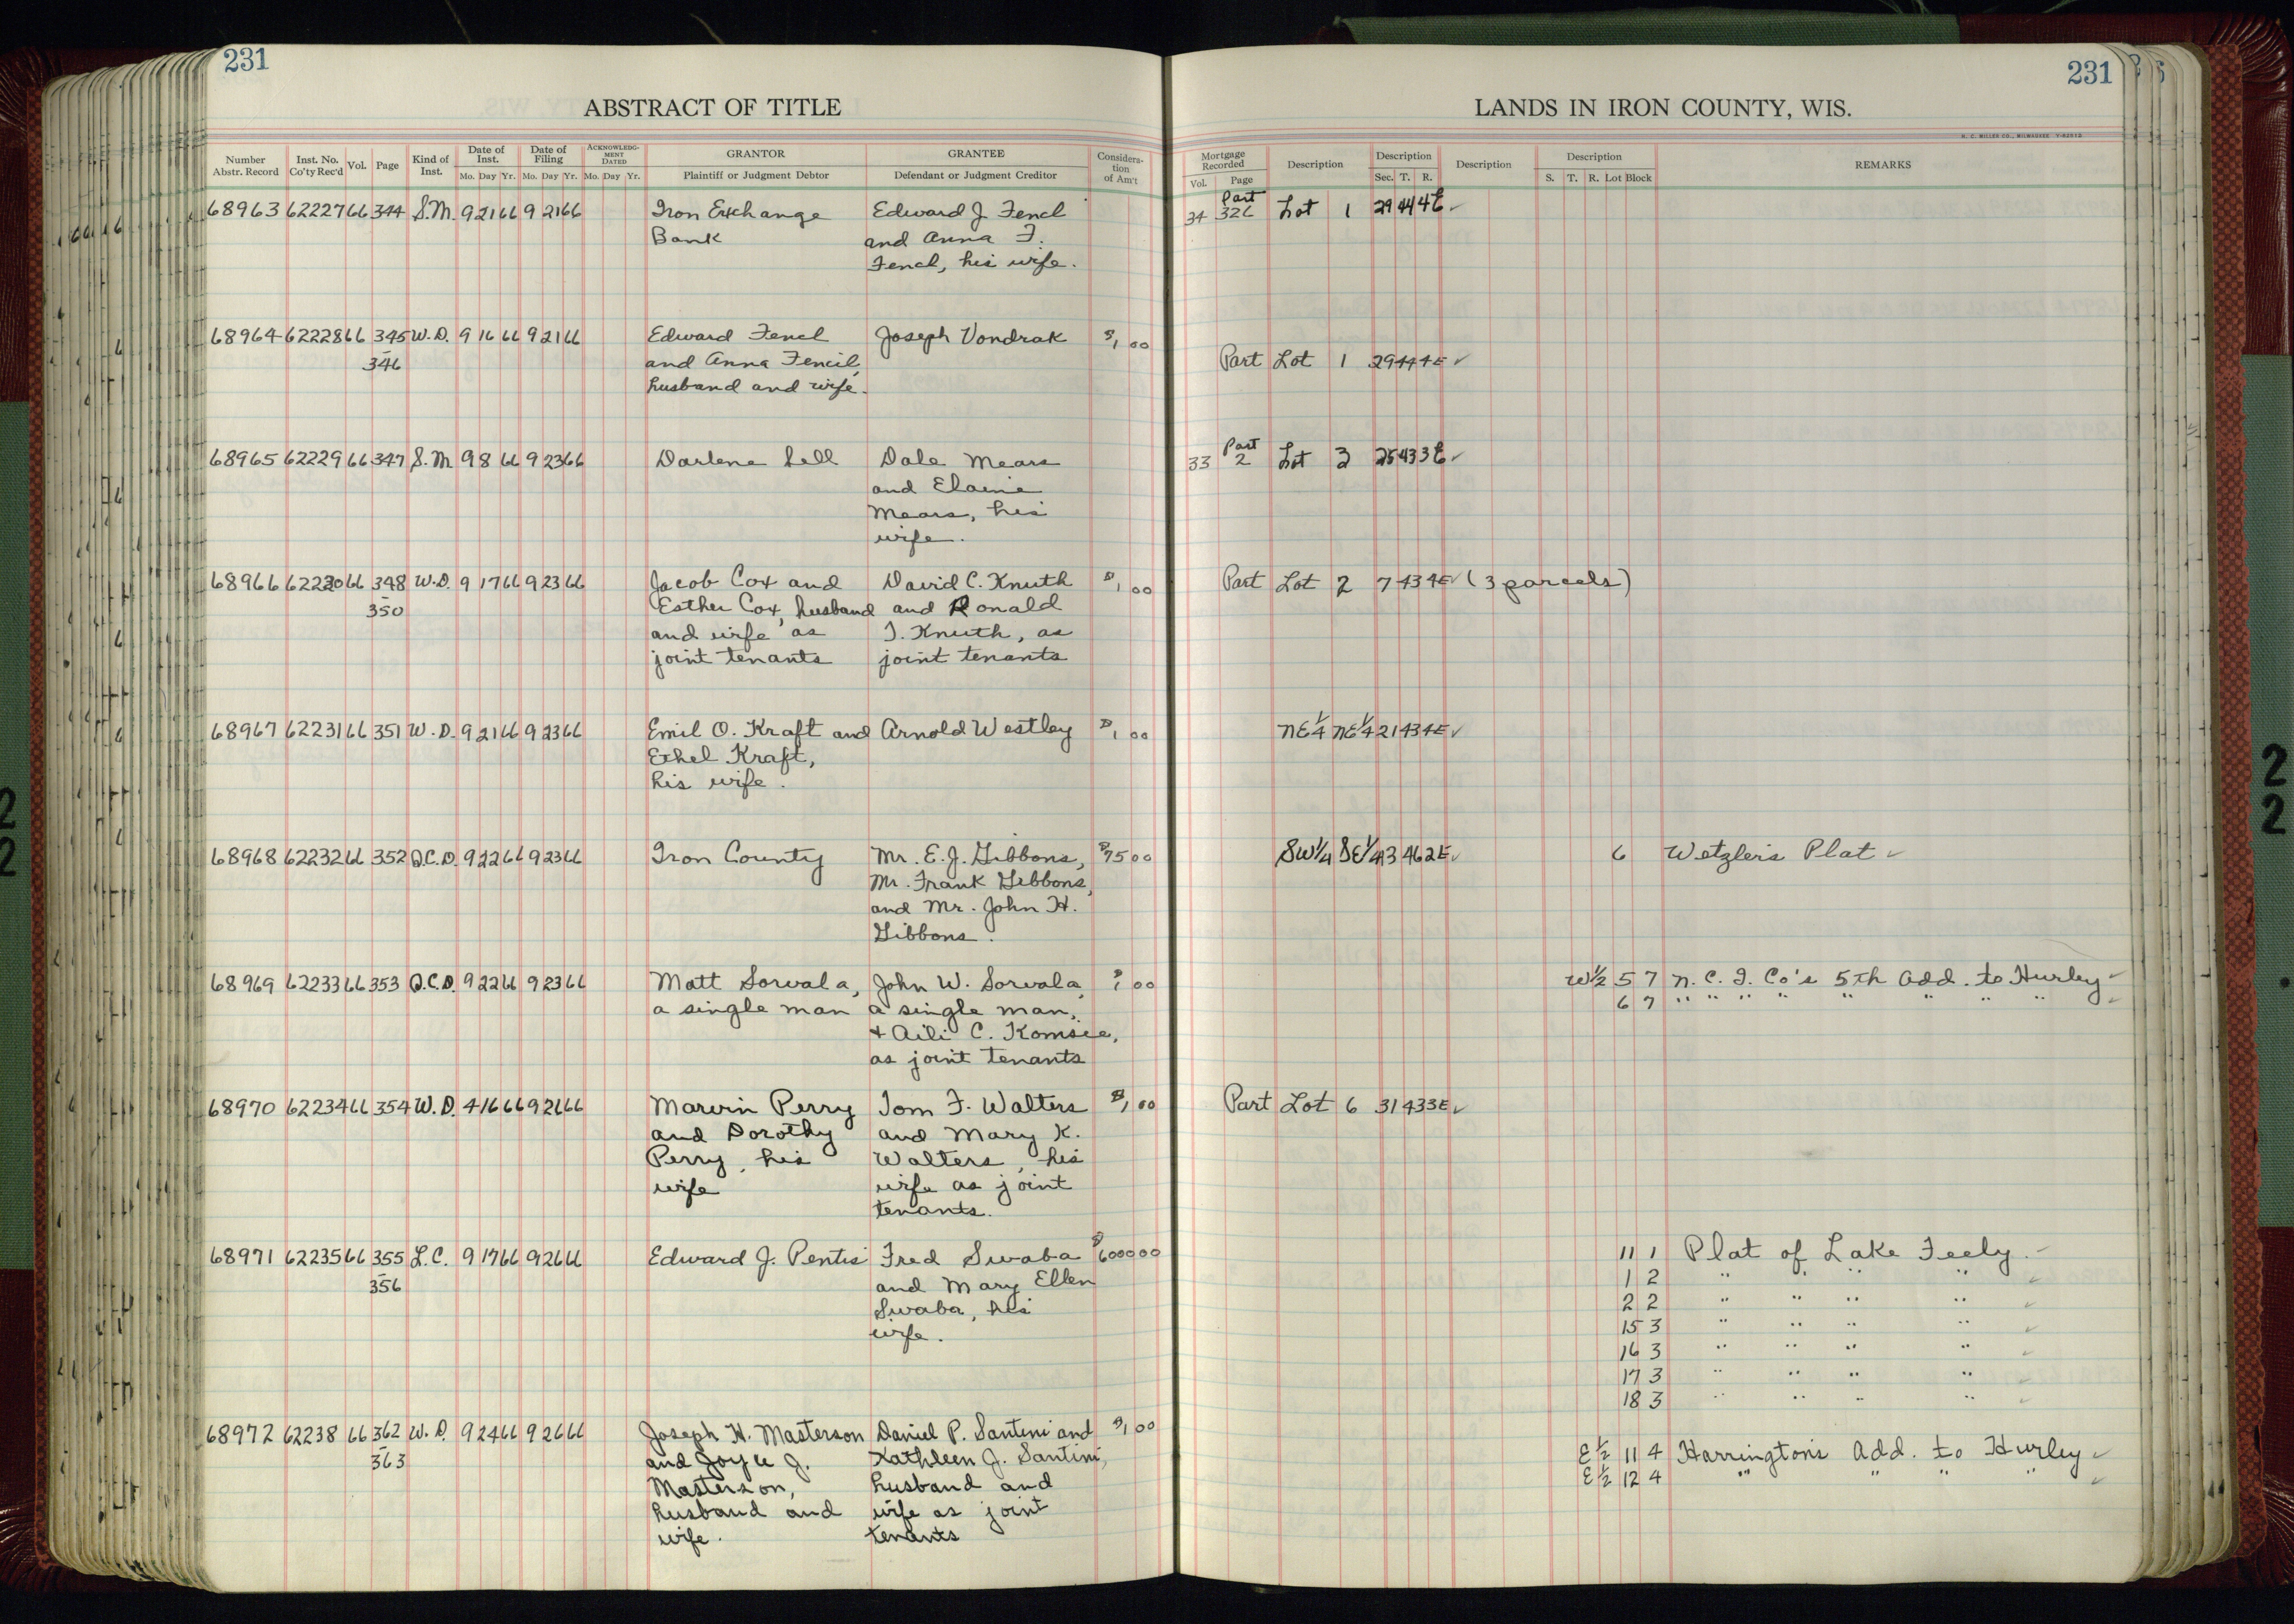 231
ABSTRACT OF TITLE
Number Abstr. Record Inst. No. Co'ty Rec'd Vol. Page Kind of Inst. Date of Inst. Mo. Day Yr. Date of Filing Mo. Day Yr. ACKNOWLEDGMENT DATED Mo. Day Yr. GRANTOR Plaintiff or Judgment Debtor GRANTEE Defendant or Judgment Creditor Consideration of Am't
68963 62227 66 344 S.M. 9 21 66 9 21 66 Iron Exchange Edward J. Fencl
Bank and Anna F.
Fencl, his wife.
68964 62228 66 345 W.D. 9 16 66 9 21 66 Edward Fencl Joseph Vondrak $1 00
- 346 and Anna Fencil,
husband and wife.
68965 62229 66 347 S.M 9 8 66 9 23 66 Darlene Sell Dale Mears
and Elaine
Mears, his
wife.
68966 62230 66 348 W.D. 9 17 66 9 23 66 Jacob Cox and David C. Knuth $1 00
- 350 Esther Cox, husband and Ronald
and wife as J. Knuth, as
joint tenants joint tenants
68967 62231 66 351 W.D. 9 21 66 9 23 66 Emil O. Kraft and Arnold Westley $1 00
Ethel Kraft,
his wife.
68968 62232 66 352 Q.C.D. 9 22 66 9 23 66 Iron County Mr. E.J. Gibbons, $75 00
Mr. Frank Gibbons,
and Mr. John H.
Gibbons.
68969 62233 66 353 Q.C.D. 9 22 66 9 23 66 Matt Sorvala, John W. Sorvala, $1 00
a single man a single man,
+ Aili C. Komsie,
as joint tenants
68970 62234 66 354 W.D. 4 16 66 9 26 66 Marvin Perry Tom F. Walters $1 00
and Dorothy and Mary K.
Perry, his Walters, his
wife wife as joint
tenants.
68971 62235 66 355 L.C. 9 17 66 9 26 66 Edward J. Pentis Fred Swaba $6000 00
- 356 and Mary Ellen
Swaba, his
wife.
68972 62238 66 362 W.D. 9 24 66 9 26 66 Joseph H. Masterson Daniel P. Santini and $1 00
- 363 and Joyce J. Kathleen J. Santini,
Masterson, husband and
husband and wife as joint
wife. tenants
231
LANDS IN IRON COUNTY, WIS.
H. C. MILLER CO., MILWAUKEE
Mortgage Recorded Vol. Page Description Description Sec. T. R. Description Description S. T. R. Lot Block REMARKS
Part
34 326 Lot 1 29 44 4E ✓
Part Lot 1 29 44 4E ✓
Part
33 2 Lot 3 25 43 3E ✓
Part Lot 2 7 43 4E ✓ (3 parcels)
NE 1/4 NE 1/4 21 43 4E ✓
SW 1/4 SE 1/4 13 46 2E ✓ 6 Wetzler's Plat ✓
W 1/2 5 7 N. C. I. Co's 5th Add. to Hurley ✓
6 7 " " " " " " " " ✓
Part Lot 6 31 43 3E ✓
11 1 Plat of Lake Feely. ✓
1 2 " " " " ✓
2 2 " " " " ✓
15 3 " " " " ✓
16 3 " " " " ✓
17 3 " " " " ✓
18 3 " " " " ✓
E 1/2 11 4 Harrington's Add. to Hurley ✓
E 1/2 12 4 " " " " ✓
2
2
2
2